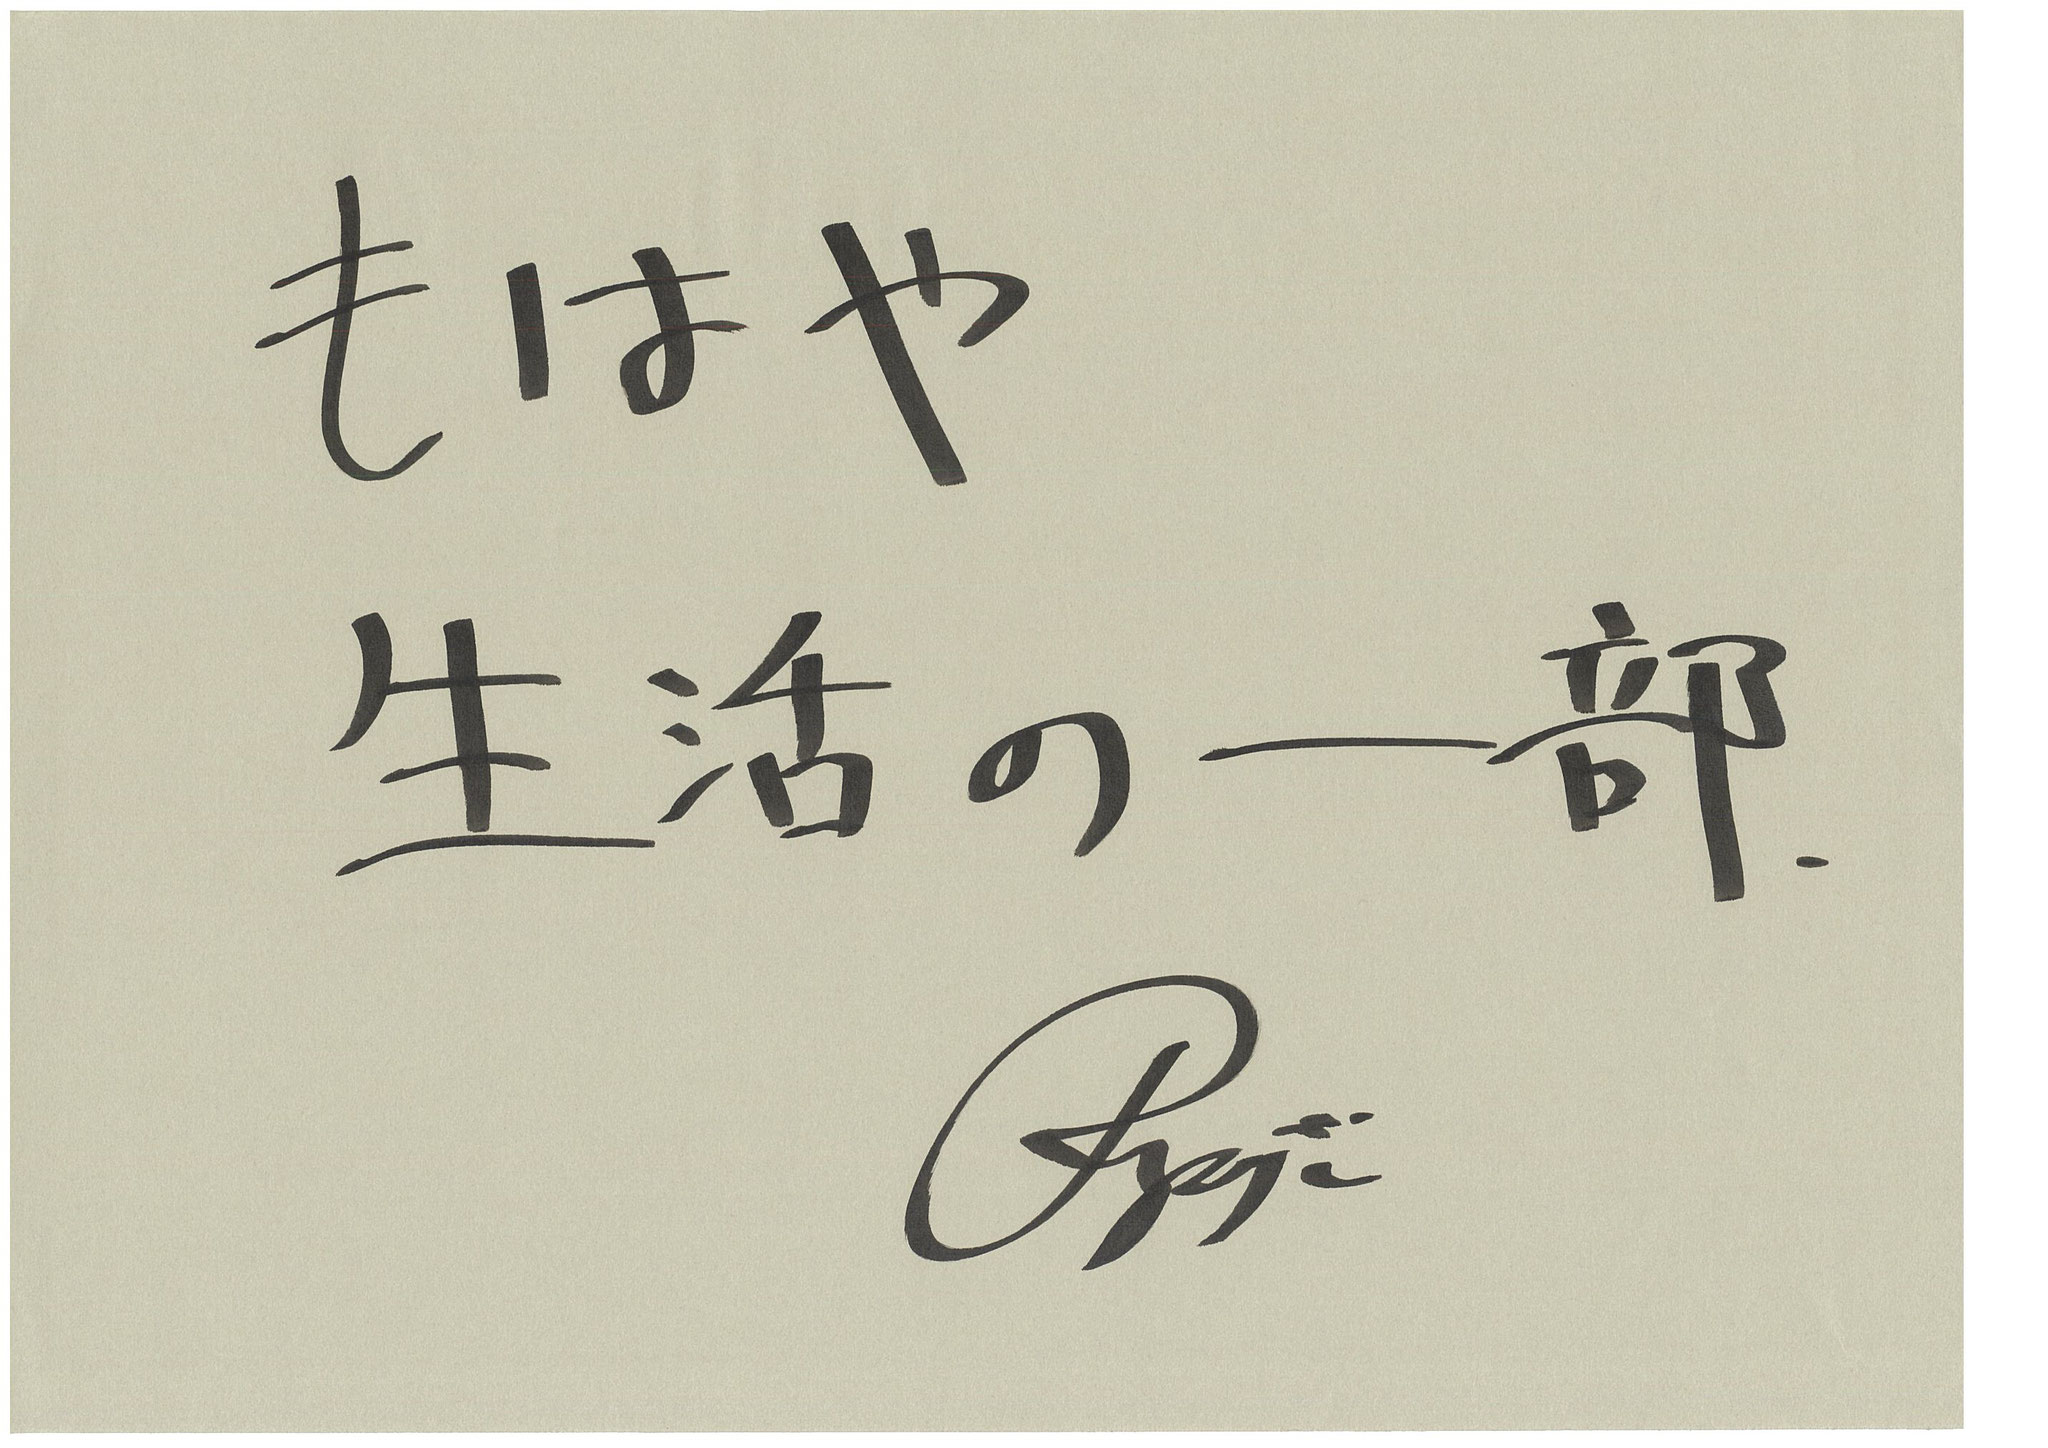 もはや
生活の一部.
Ryoji